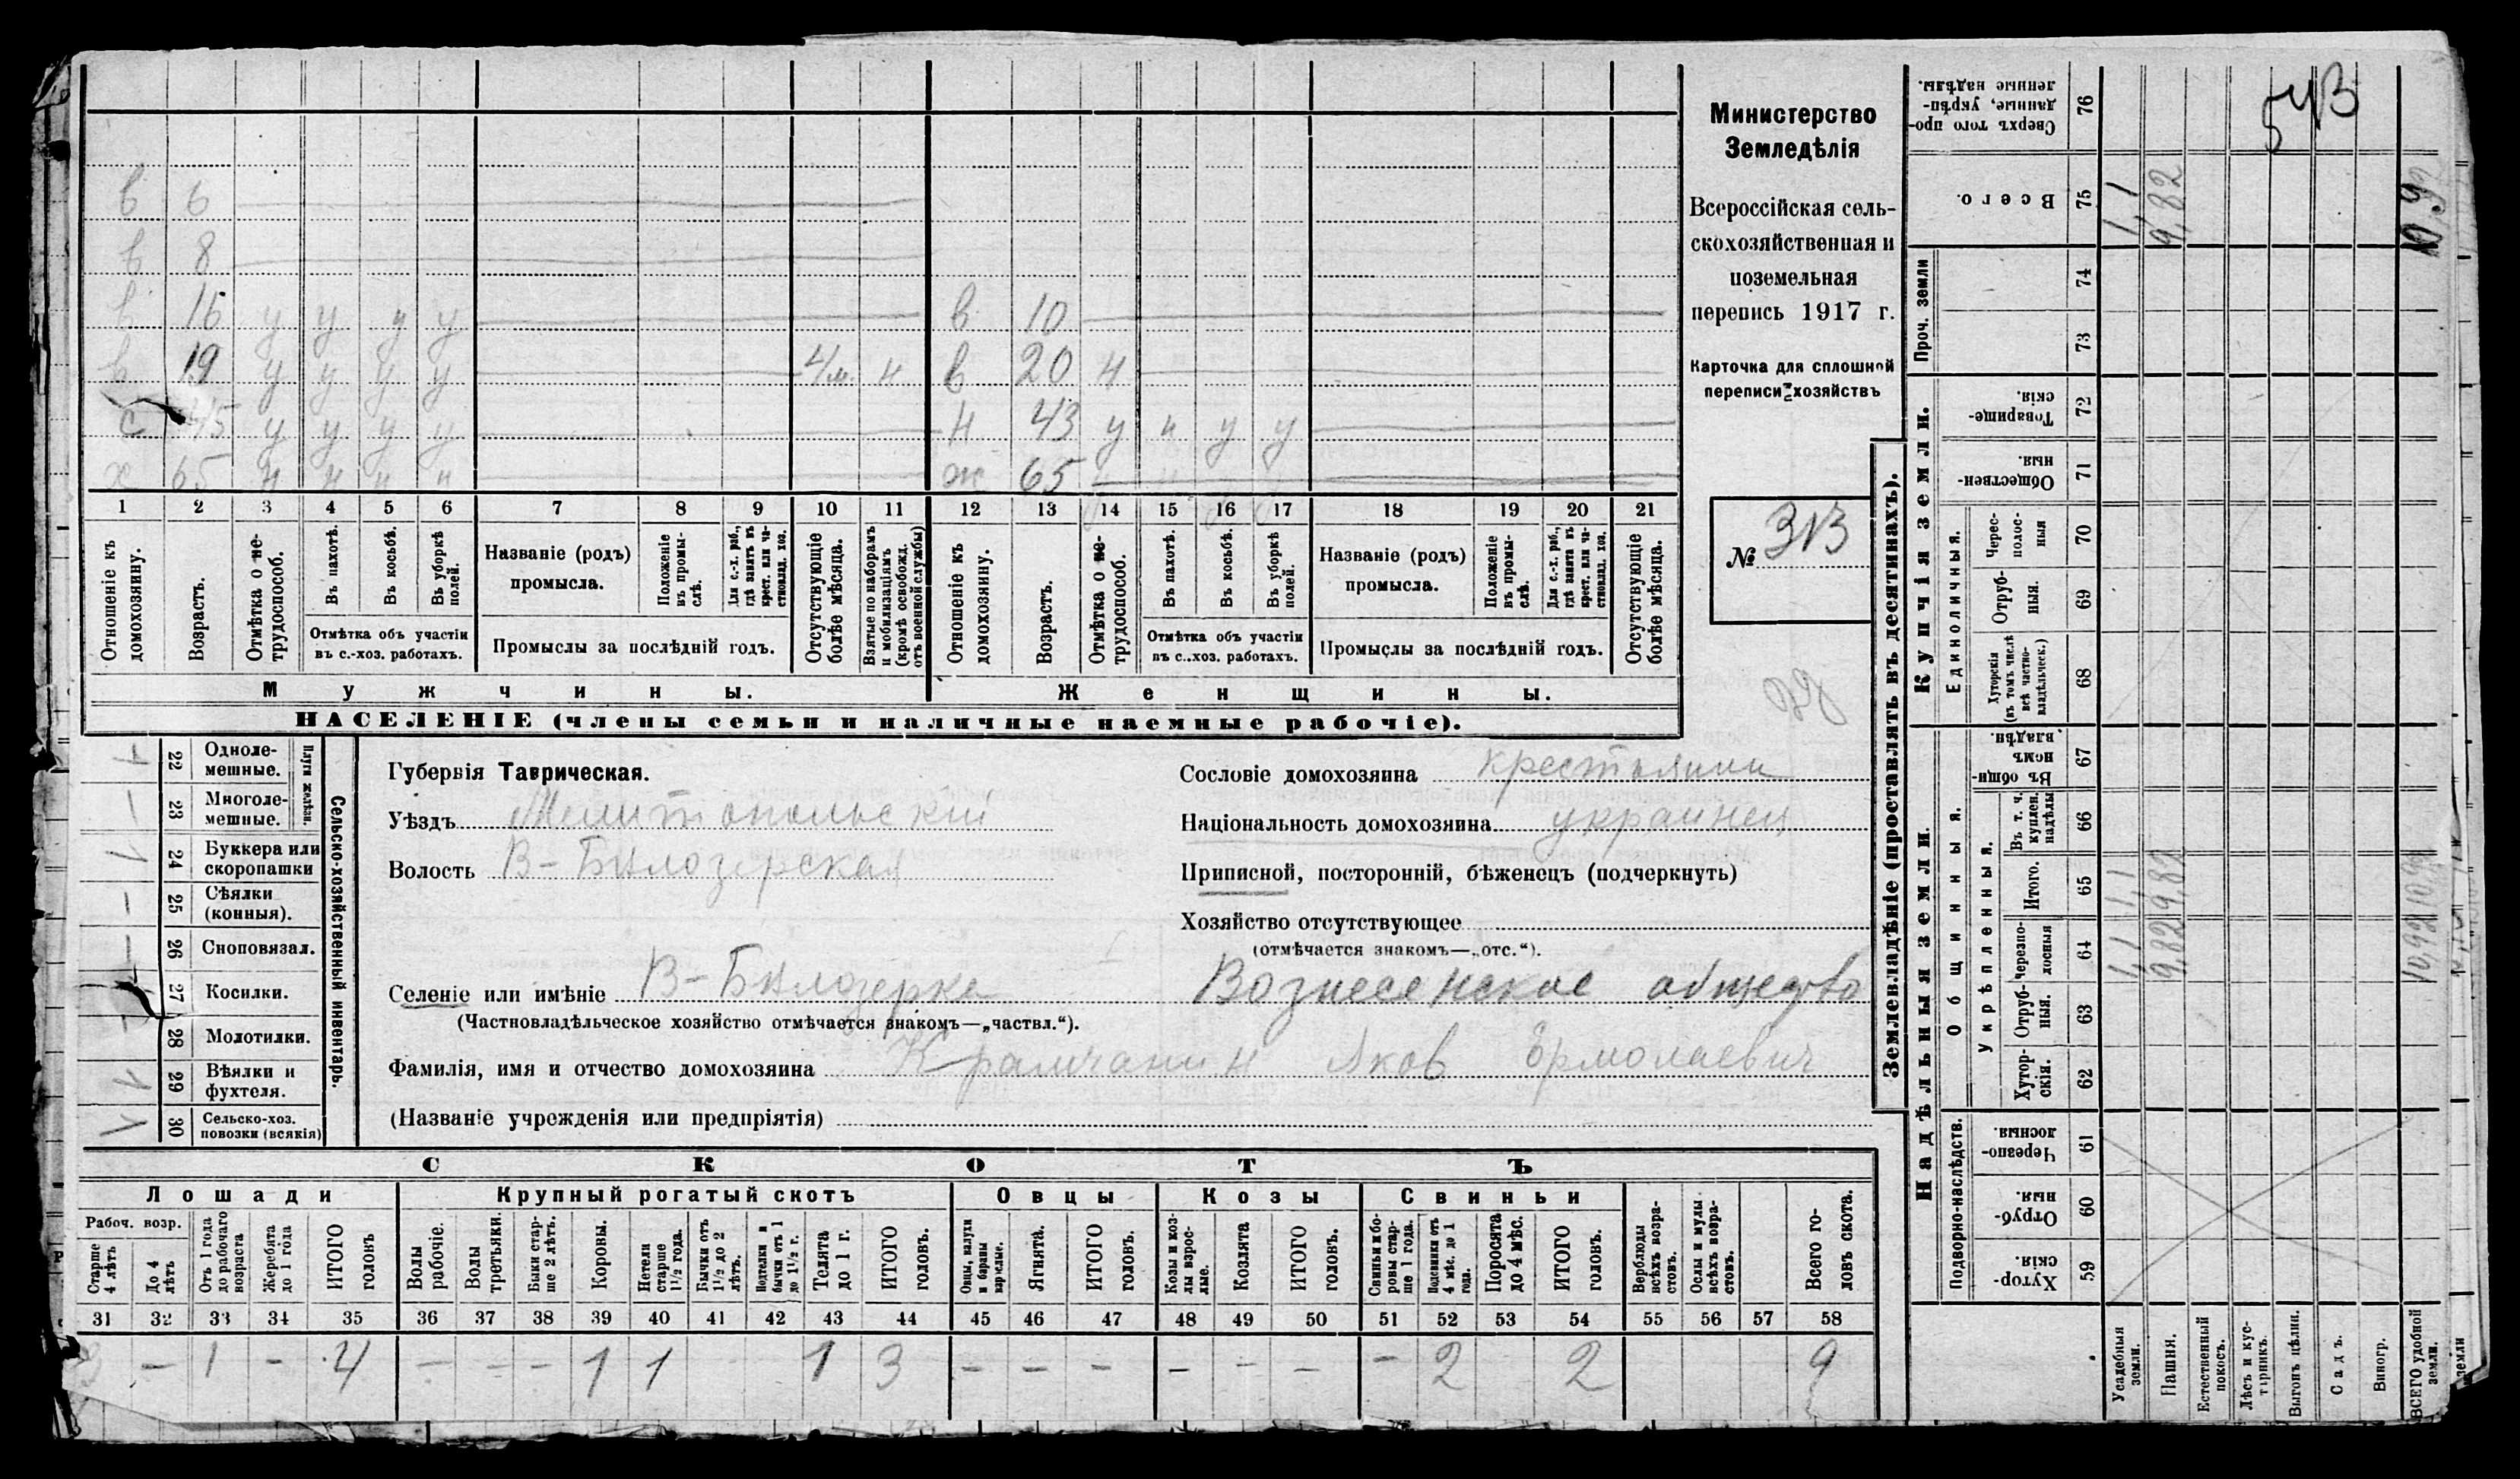 в 6
в 8
в 16 у у у у в 10
в 19 у у у у 4 м. н в 20 н
с 45 у у у у н 43 у н у у
х 65 н н н н ж 65
1 2 3 4 5 6 7 8 9 10 11 12 13 14 15 16 17 18 19 20 21
Отношеніе къ домохозяину.
Возрастъ.
Отмѣтка о не-трудоспособ.
Въ пахотѣ.
Въ косьбѣ.
Въ уборкѣ полей.
Отмѣтка объ участіи въ с.-хоз. работахъ.
Названіе (родъ) промысла.
Положеніе въ промы-слѣ.
Для с.-х. раб., гдѣ занятъ въ крест. или ча-стновлад. хоз.
Промыслы за послѣдній годъ.
Отсутствующіе болѣе мѣсяца.
Взятые по наборамъ и мобилизаціямъ (кромѣ освобожд. отъ военной службы)
Отношеніе къ домохозяину.
Возрастъ.
Отмѣтка о не-трудоспособ.
Въ пахотѣ.
Въ косьбѣ.
Въ уборкѣ полей.
Отмѣтка объ участіи въ с..хоз. работахъ.
Названіе (родъ) промысла.
Положеніе въ промы-слѣ.
Для с.-х. раб., гдѣ занята въ крест. или ча-стновлад. хоз.
Промыслы за послѣдній годъ.
Отсутствующіе болѣе мѣсяца.
Мужчины. Женщины.
НАСЕЛЕНІЕ (члены семьи и наличные наемные рабочіе).
Министерство
Земледѣлія
Всероссійская сель-
скохозяйственная и
поземельная
перепись 1917 г.
Карточка для сплошной
переписи хозяйствъ
№ 313
22 Одноле-мешные.
23 Многоле-мешные.
Плуги желѣзн.
24 Буккера или скоропашки
25 Сѣялки (конныя).
26 Сноповязал.
27 Косилки.
28 Молотилки.
29 Вѣялки и фухтеля.
30 Сельско-хоз. повозки (всякія)
Сельско-хозяйственный инвентарь.
Губернія Таврическая.
Уѣздъ Мелитопольскій
Волость В-Бѣлозерская
Селеніе или имѣніе В-Бѣлозерка
(Частновладѣльческое хозяйство отмѣчается знакомъ—„частвл.“).
Фамилія, имя и отчество домохозяина Крамчанин Яков Ермолаевич
(Названіе учрежденія или предпріятія)
Сословіе домохозяина крестьянин
Національность домохозяина украинец
Приписной, посторонній, бѣженецъ (подчеркнуть)
Хозяйство отсутствующее
(отмѣчается знакомъ—„отс.“).
Вознесенское общество
СКОТЪ
Лошади Крупный рогатый скотъ Овцы Козы Свиньи
Рабоч. возр.
Старше 4 лѣтъ
До 4 лѣтъ
Отъ 1 года до рабочаго возраста
Жеребята до 1 года
ИТОГО головъ
Волы рабочіе.
Волы третьяки.
Быки стар-ше 2 лѣтъ.
Коровы.
Нетели старше 1½ года.
Бычки отъ 1½ до 2 лѣтъ.
Подтелки и бычки отъ 1 до 1½ г.
Телята до 1 г.
ИТОГО головъ.
Овцы, валухи и бараны взрослые.
Ягнята.
ИТОГО головъ.
Козы и коз-лы взрос-лые.
Козлята
ИТОГО головъ.
Свиньи и бо-ровы стар-ше 1 года.
Подсвинки отъ 4 мѣс. до 1 года.
Поросята до 4 мѣс.
ИТОГО головъ.
Верблюды всѣхъ возра-стовъ.
Ослы и мулы всѣхъ возра-стовъ.
Всего го-ловъ скота.
31 32 33 34 35 36 37 38 39 40 41 42 43 44 45 46 47 48 49 50 51 52 53 54 55 56 57 58
3 — 1 — 4 — — — 1 1 1 3 — — — — — — — 2 2 9
Землевладѣніе (проставлять въ десятинахъ).
Надѣльныя земли. Купчія земли. Проч. земли
Подворно-наслѣдств.
Общинныя.
Укрѣпленныя.
Единоличныя.
Сверхъ того про-данные, укрѣп-ленные надѣлы. 76
Всего. 75
74
73
Товарище-скія. 72
Обществен-ныя. 71
Черес-полос-ныя 70
Отруб-ныя. 69
Хуторскія (въ томъ числѣ всѣ частно-владѣльческ.) 68
Въ общи-номъ владѣн. 67
Въ т. ч. куплен. надѣлы 66
Итого. 65
Черезпо-лосныя 64
Отруб-ныя. 63
Хутор-скія. 62
Черезпо-лосныя. 61
Отруб-ныя. 60
Хутор-скія 59
Усадебныя земли. 1,1 1,1 1,1
Пашня. 9,82 9,82 9,82
Естественный покосъ.
Лѣсъ и кус-тарникъ.
Выгонъ цѣлин.
Садъ.
Виногр.
ВСЕГО удобной земли. 10,92 10,92 10,92
земли